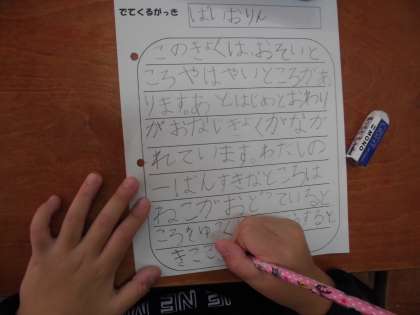 でてくるがっき
ばいおりん
このきょくは、おそいと
ころやはやいところがあ
ります。あとはじめとおわり
がおなじきょくがなが
れています。わたしの
一ばんすきなところは
ねこがおどっていると
ころをゆ
きこ
MONO